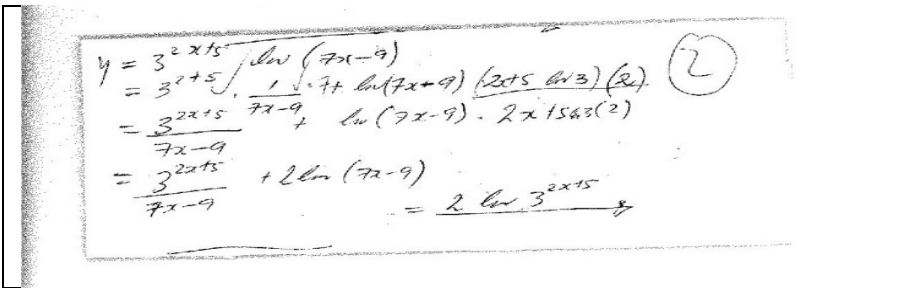 y = 3^{2x+5} ln (7x-9)
= 3^{2+5} . 1/(7x-9) . 7 + ln(7x+9) (2x+5 ln 3) (2)
= 3^{2x+5}/(7x-9) + ln (7x-9) . 2x+5 ln 3(2)
= 3^{2x+5}/(7x-9) + 2 ln (7x-9)
= 2 ln 3^{2x+5}
2